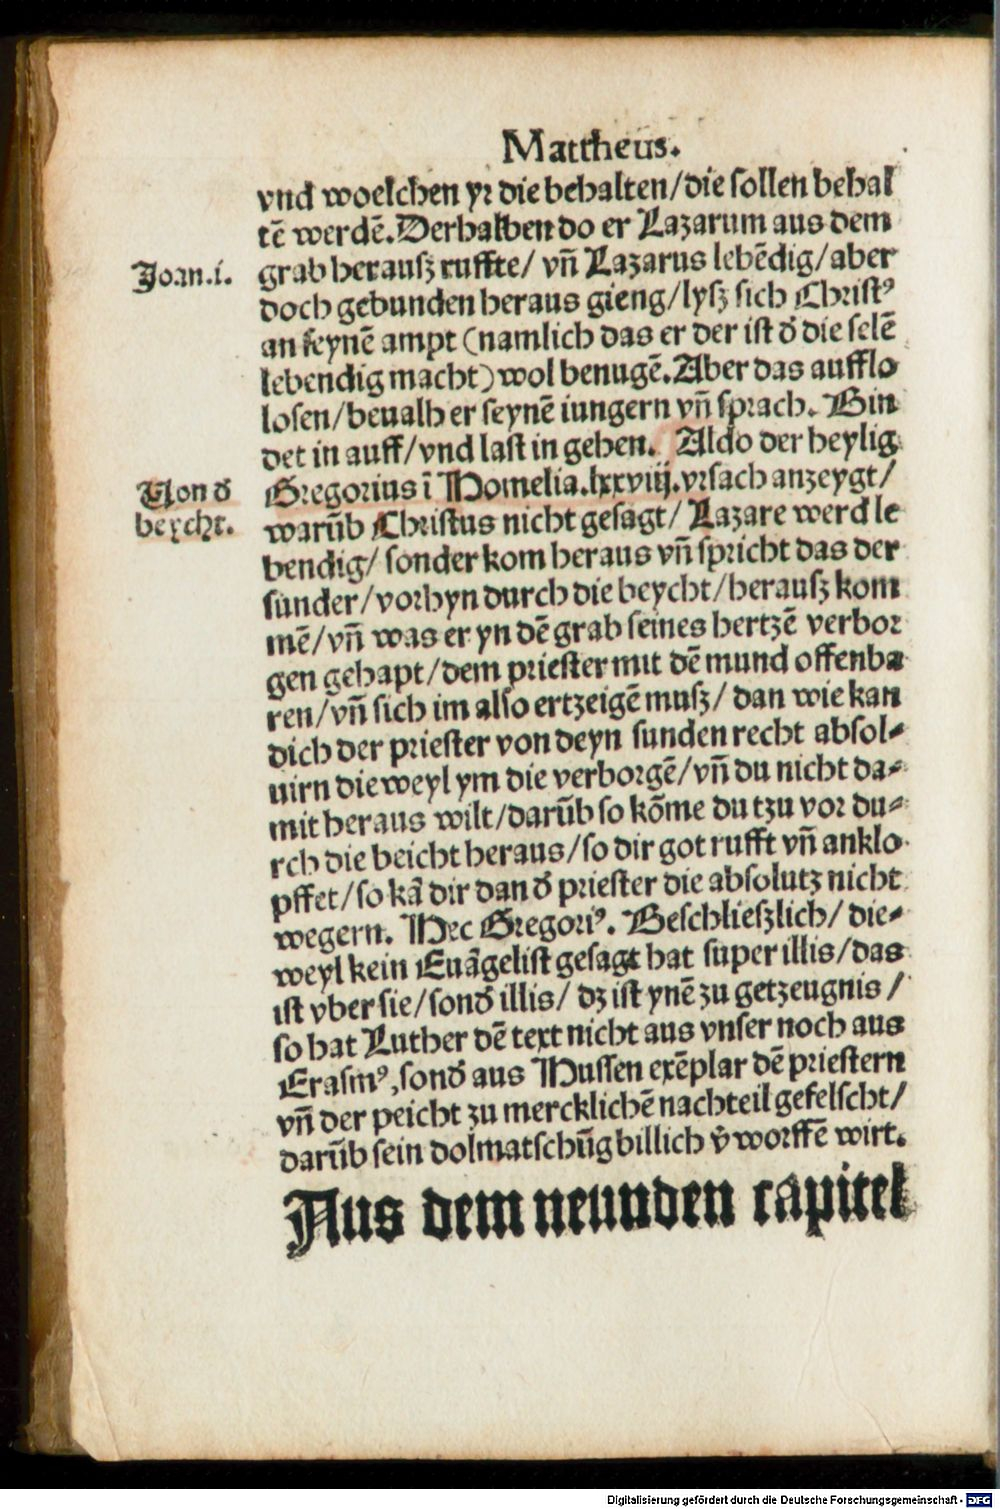 Mattheus.
vnd woelchen yr die behalten/die sollen behal
tē werdē. Derhalben do er Lazarum aus dem
Joan.i.
grab herausz ruffte/ vn̄ Lazarus lebēdig/aber
doch gebunden heraus gieng/lysz sich Christꝰ
an seynē ampt (namlich das er der ist d̄ die selē
lebendig macht) wol benugē. Aber das aufflo
losen/beualh er seynē iungern vn̄ sprach. Bin
det in auff/vnd last in gehen. Aldo der heylig
Von d̄
beycht.
Gregorius ī Homelia.lxxviij.vrsach anzeygt/
warūb Christus nicht gesagt/ Lazare werd le
bendig/ sonder kom heraus vn̄ spricht das der
sunder/vorhyn durch die beycht/herausz kom
mē/vn̄ was er yn dē grab seines hertzē verbor
gen gehapt/dem priester mit dē mund offenba
ren/vn̄ sich im also ertzeigē musz/ dan wie kan
dich der priester von deyn sunden recht absol⸗
uirn die weyl ym die verborgē/vn̄ du nicht da⸗
mit heraus wilt/darūb so kōme du tzu vor du⸗
rch die beicht heraus/so dir got rufft vn̄ anklo
pffet/so kā dir dan d̄ priester die absolutz nicht
wegern. Hec Gregoriꝰ. Beschlieszlich/ die⸗
weyl kein Euāgelist gesagt hat super illis/das
ist vber sie/sond̄ illis/ dz ist ynē zu getzeugnis /
so hat Luther dē text nicht aus vnser noch aus
Erasmꝰ,sond̄ aus Hussen exēplar dē priestern
vn̄ der peicht zu mercklichē nachteil gefelscht/
darūb sein dolmatschūg billich v̄worffē wirt.
Aus dem neunden capitel
Digitalisierung gefördert durch die Deutsche Forschungsgemeinschaft - DFG